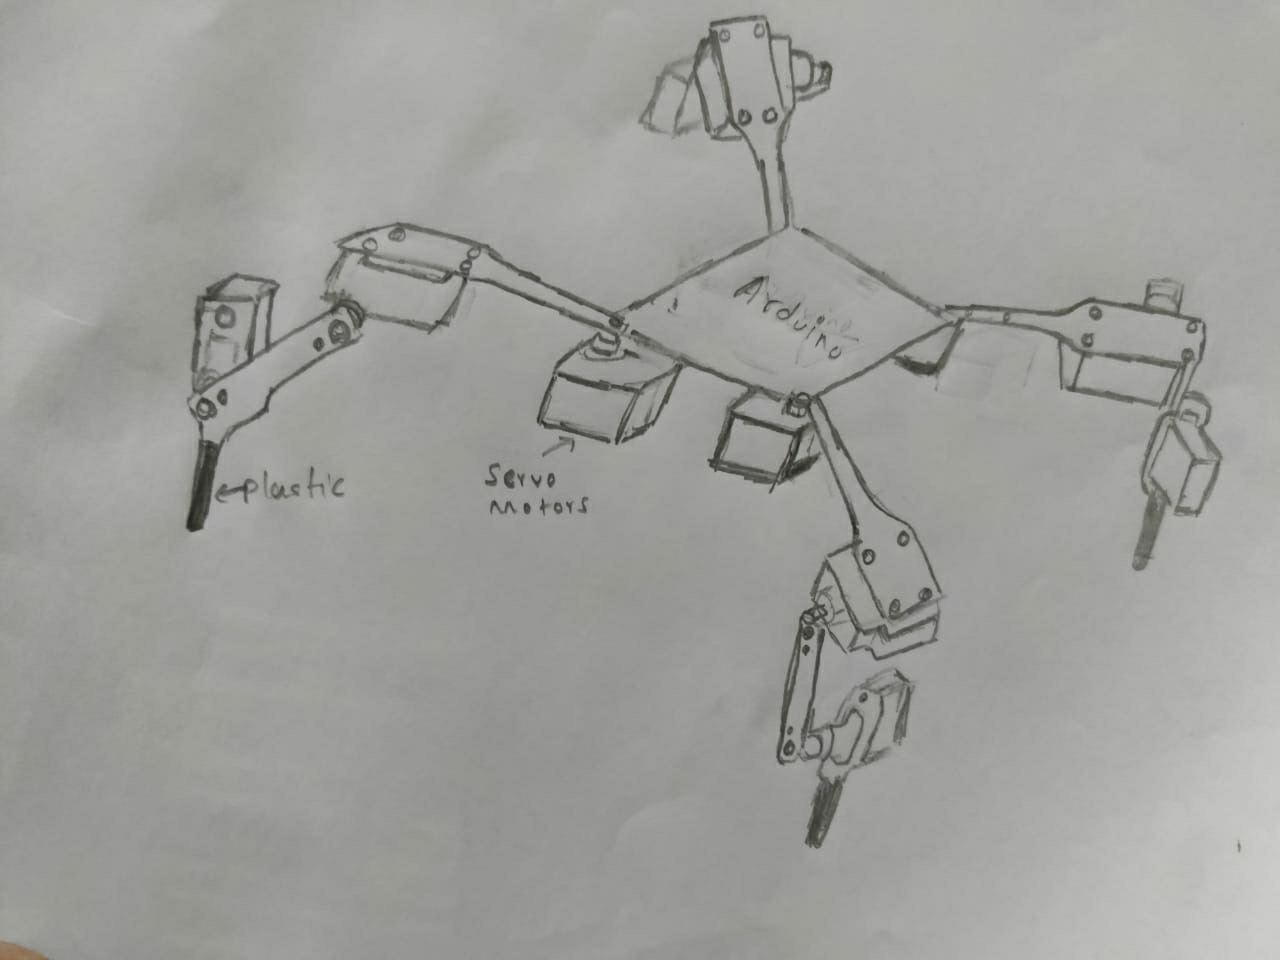 Arduino
←plastic
Servo
Motors